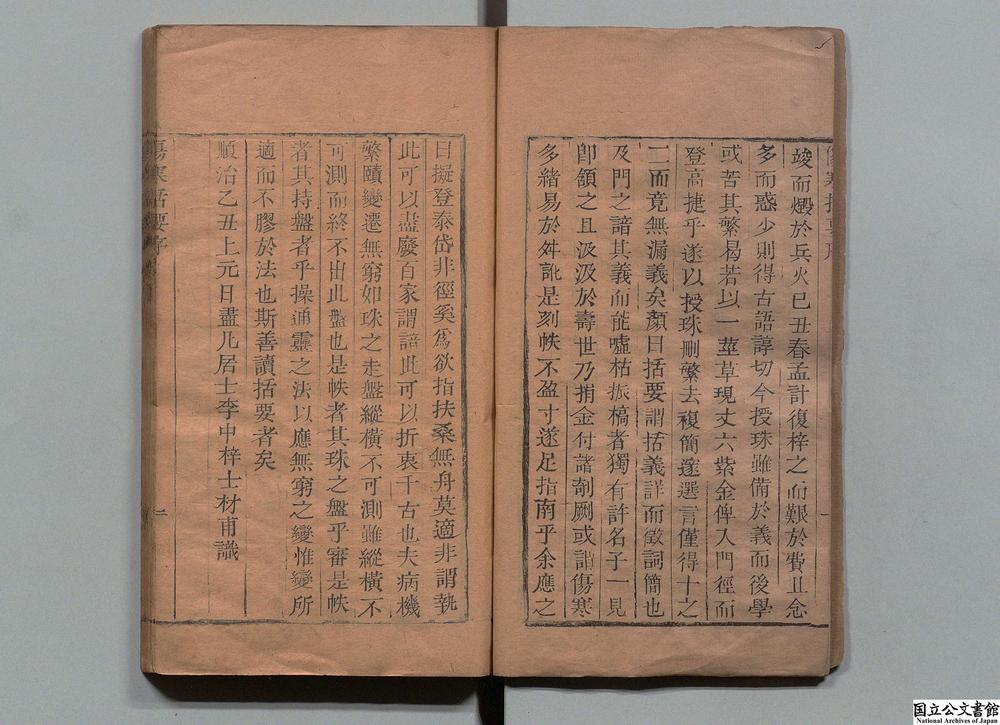 竣而燬於兵火已丑春孟計復梓之而艱於費且念
多而惑少則得古語諄切今授珠雖備於義而後學
或苦其繁曷若以一莖草現丈六紫金俾入門徑而
登高捷乎遂以授珠刪繁去複簡邃選言僅得十之
二而竟無漏義矣顏曰括要謂括義詳而徵詞簡也
及門之諳其義而能噓枯振槁者獨有許名子一見
卽頷之且汲汲於壽世乃捐金付諸剞劂或謂傷寒
多緒易於舛訛是刻帙不盈寸遂足指南乎余應之
曰擬登泰岱非徑奚爲欲指扶桑無舟莫適非謂執
此可以盡廢百家謂諳此可以折衷千古也夫病機
繁賾變遷無窮如珠之走盤縱橫不可測雖縱橫不
可測而終不出此盤也是帙者其珠之盤乎審是帙
者其持盤者乎操通靈之法以應無窮之變惟變所
適而不膠於法也斯善讀括要者矣
順治乙丑上元日盡凡居士李中梓士材甫識
傷寒括要序
二
国立公文書館
National Archives of Japan